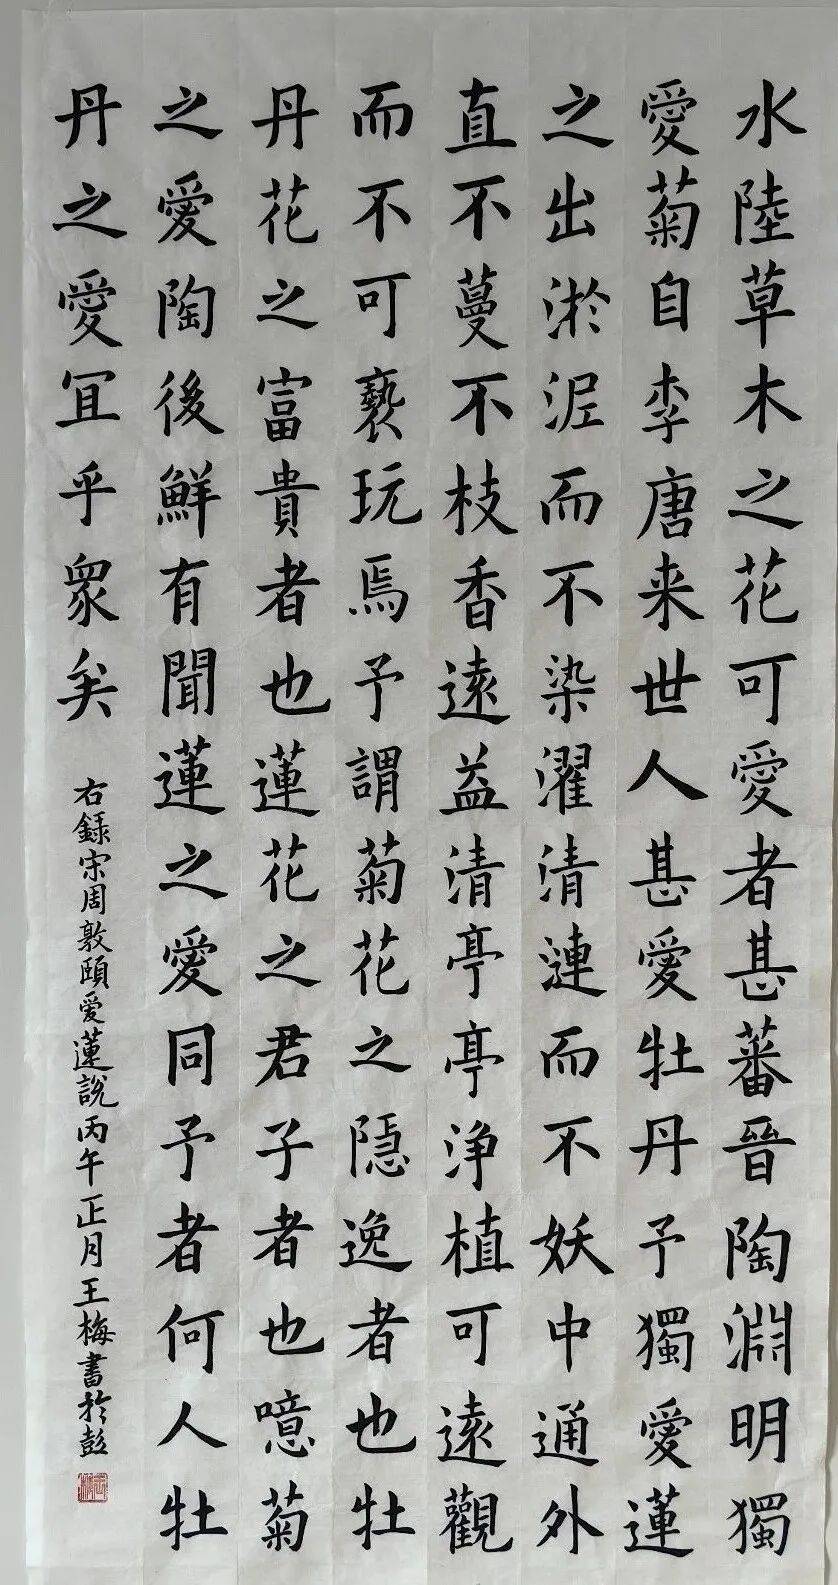 水陸草木之花可愛者甚蕃晉陶淵明獨
愛菊自李唐来世人甚愛牡丹予獨愛蓮
之出淤泥而不染濯清漣而不妖中通外
直不蔓不枝香遠益清亭亭浄植可遠觀
而不可褻玩焉予謂菊花之隱逸者也牡
丹花之富貴者也蓮花之君子者也噫菊
之愛陶後鮮有聞蓮之愛同予者何人牡
丹之愛宜乎衆矣
右録宋周敦頤爱蓮說丙午正月王梅書於彭